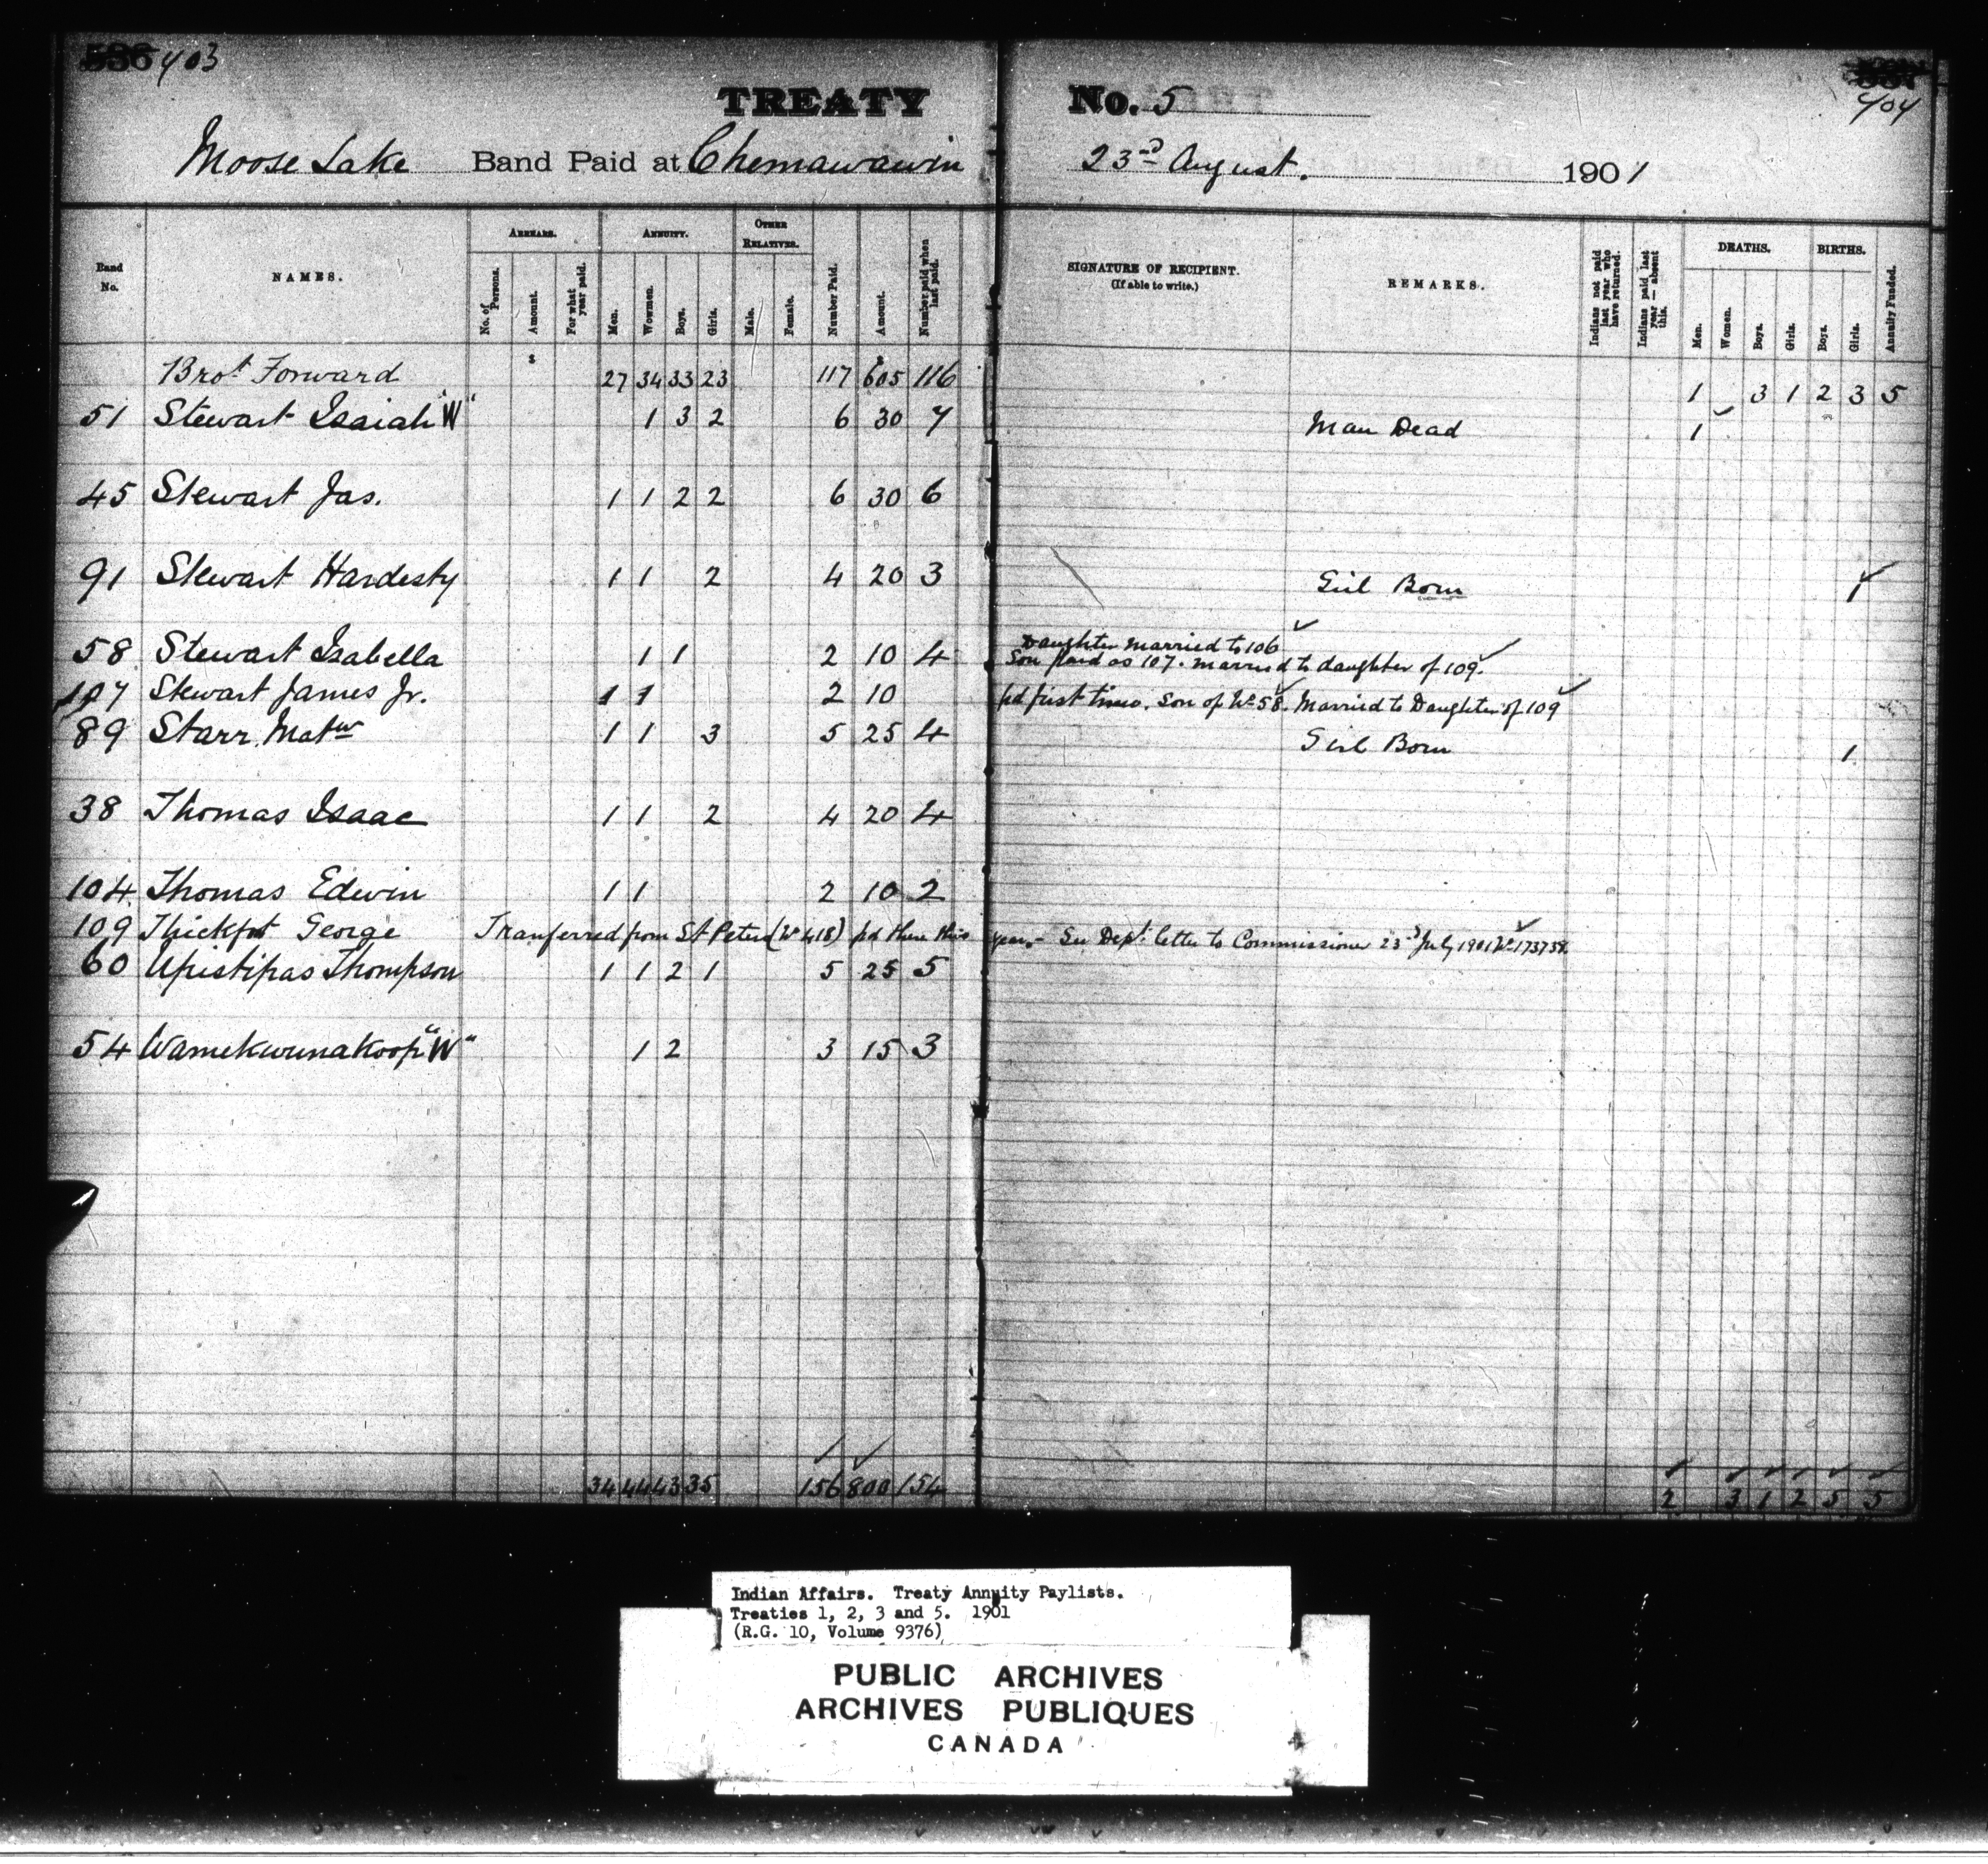 403
404
TREATY No. 5
Moose Lake Band Paid at Chemawawin 23rd August. 1901
Band No. NAMES. ARREARS. No. of Persons. Amount. For what year paid. ANNUITY. Men. Women. Boys. Girls. OTHER RELATIVES. Male. Female. Number Paid. Amount. Number paid when last paid. SIGNATURE OF RECIPIENT. (If able to write.) REMARKS. Indians not paid last year who have returned. Indians paid last year — absent this. DEATHS. Men. Women. Boys. Girls. BIRTHS. Boys. Girls. Annuity Funded.
Brot Forward $ 27 34 33 23 117 $ 605 116 1 3 1 2 3 5
51 Stewart Isaiah "W" 1 3 2 6 30 7 Man Dead 1
45 Stewart Jas. 1 1 2 2 6 30 6
91 Stewart Hardesty 1 1 2 4 20 3 Girl Born 1
58 Stewart Isabella 1 1 2 10 4 Daughter married to 106
Son paid as 107. married to daughter of 109.
107 Stewart James Jr. 1 1 2 10 pd first time. Son of No 58. Married to Daughter of 109
89 Starr, Matw 1 1 3 5 25 4 Girl Born 1
38 Thomas Isaac 1 1 2 4 20 4
104 Thomas Edwin 1 1 2 10 2
109 Thickfoot George Tranferred from St Peters (No 418) pd there this year - See Dept. letter to Commissioner 23rd July 1901 No 173738
60 Apistipas Thompson 1 1 2 1 5 25 5
54 Wamekwunakoop "W" 1 2 3 15 3
34 44 43 35 156 800 154 2 3 1 2 5 5
Indian Affairs. Treaty Annuity Paylists.
Treaties 1, 2, 3 and 5. 1901
(R.G. 10, Volume 9376)
PUBLIC ARCHIVES
ARCHIVES PUBLIQUES
CANADA